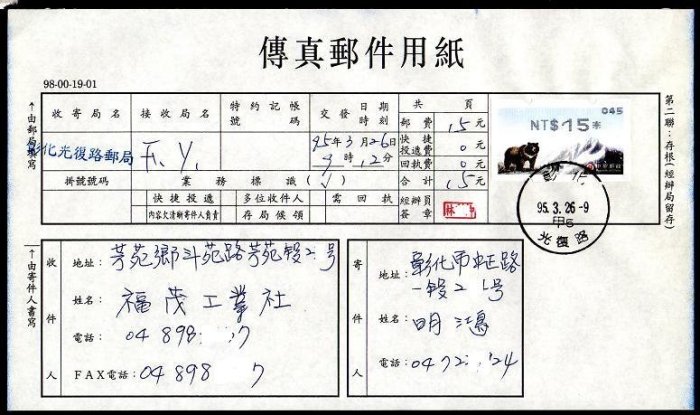 傳真郵件用紙
98-00-19-01
收寄局名 接收局名 特約記帳號碼 交發日期時刻 共 頁
彰化光復路郵局 F. Y. 95年3月26日 9時12分
郵費 15元
快捷投遞費 0元
回執費 0元
合計 15元
掛號號碼 業務標識(√)
快捷投遞 多位收件人 需回執 經辦員簽章
內容欠清晰寄件人負責 存局候領
045
NT$15*
彰化
95.3.26-9
甲5
光復路
第二聯:存根(經辦局留存)
↑由郵局填寫
↑由寄件人書寫
收件人
地址: 芳苑鄉斗苑路芳苑段2号
姓名: 福茂工業社
電話: 04 898 7
FAX電話: 04 898 7
寄件人
地址: 彰化市中正路
一段2 号
姓名: 明
電話: 0472 24